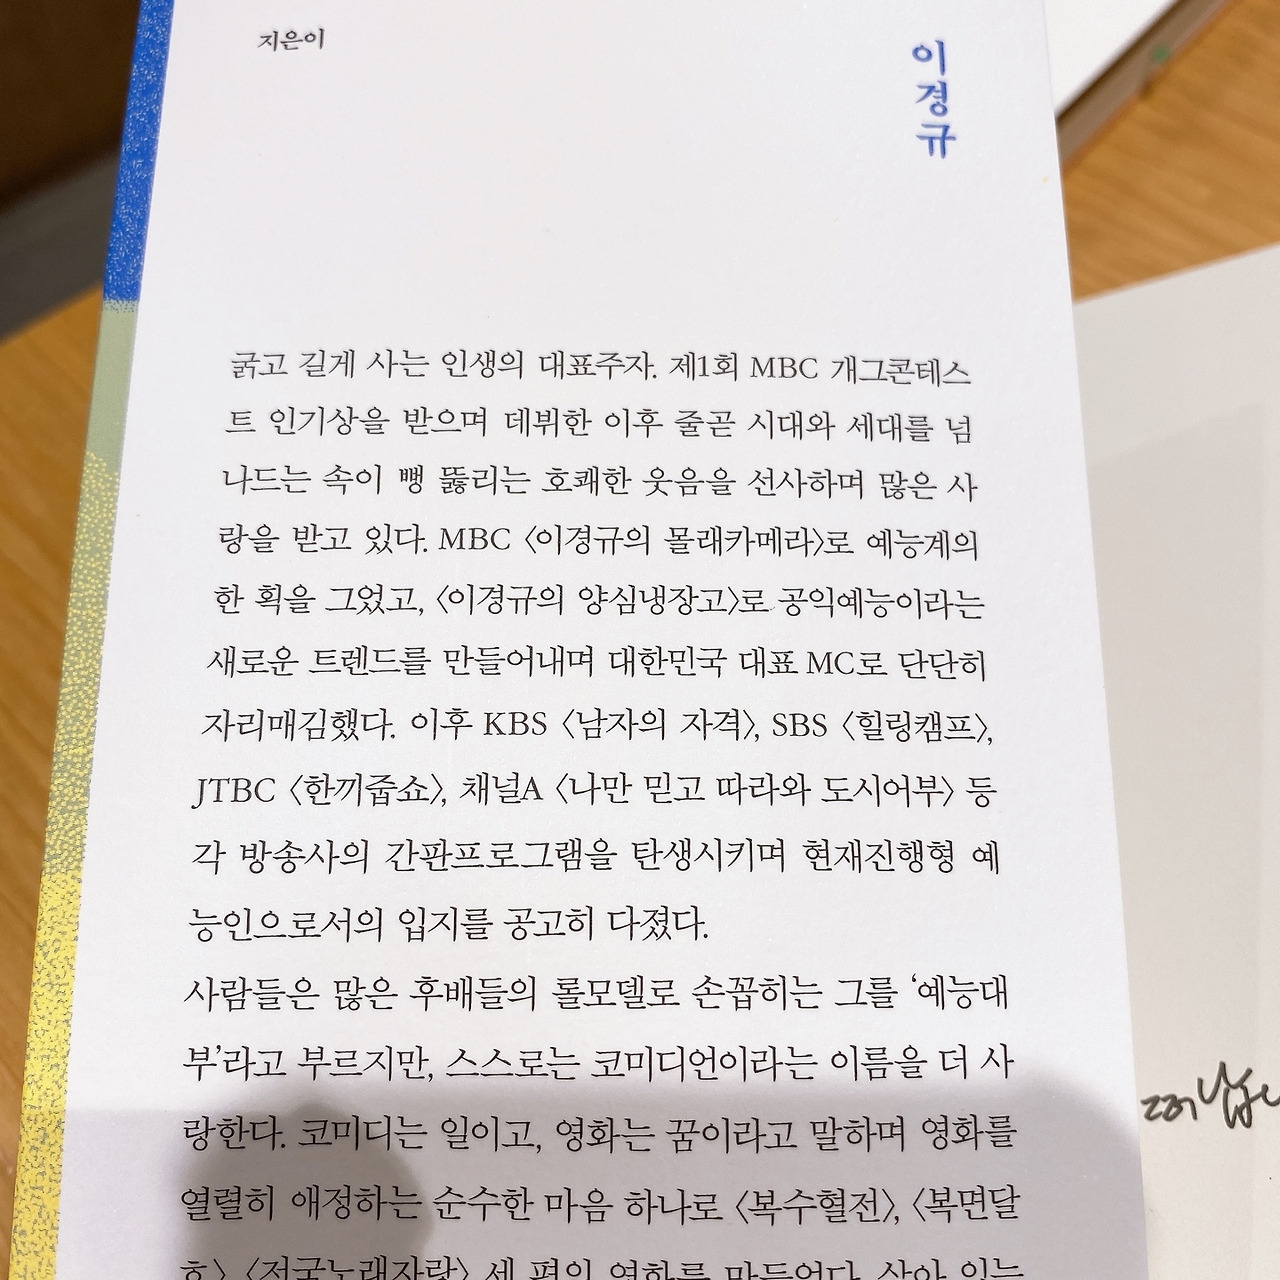 지은이
이경규
굵고 길게 사는 인생의 대표주자. 제1회 MBC 개그콘테스
트 인기상을 받으며 데뷔한 이후 줄곧 시대와 세대를 넘
나드는 속이 뻥 뚫리는 호쾌한 웃음을 선사하며 많은 사
랑을 받고 있다. MBC 〈이경규의 몰래카메라〉로 예능계의
한 획을 그었고, 〈이경규의 양심냉장고〉로 공익예능이라는
새로운 트렌드를 만들어내며 대한민국 대표 MC로 단단히
자리매김했다. 이후 KBS 〈남자의 자격〉, SBS 〈힐링캠프〉,
JTBC 〈한끼줍쇼〉, 채널A 〈나만 믿고 따라와 도시어부〉 등
각 방송사의 간판프로그램을 탄생시키며 현재진행형 예
능인으로서의 입지를 공고히 다졌다.
사람들은 많은 후배들의 롤모델로 손꼽히는 그를 ‘예능대
부’라고 부르지만, 스스로는 코미디언이라는 이름을 더 사
랑한다. 코미디는 일이고, 영화는 꿈이라고 말하며 영화를
열렬히 애정하는 순수한 마음 하나로 〈복수혈전〉, 〈복면달
호〉 〈전국노래자랑〉 세 편의 영화를 만들었다. 살아 있는